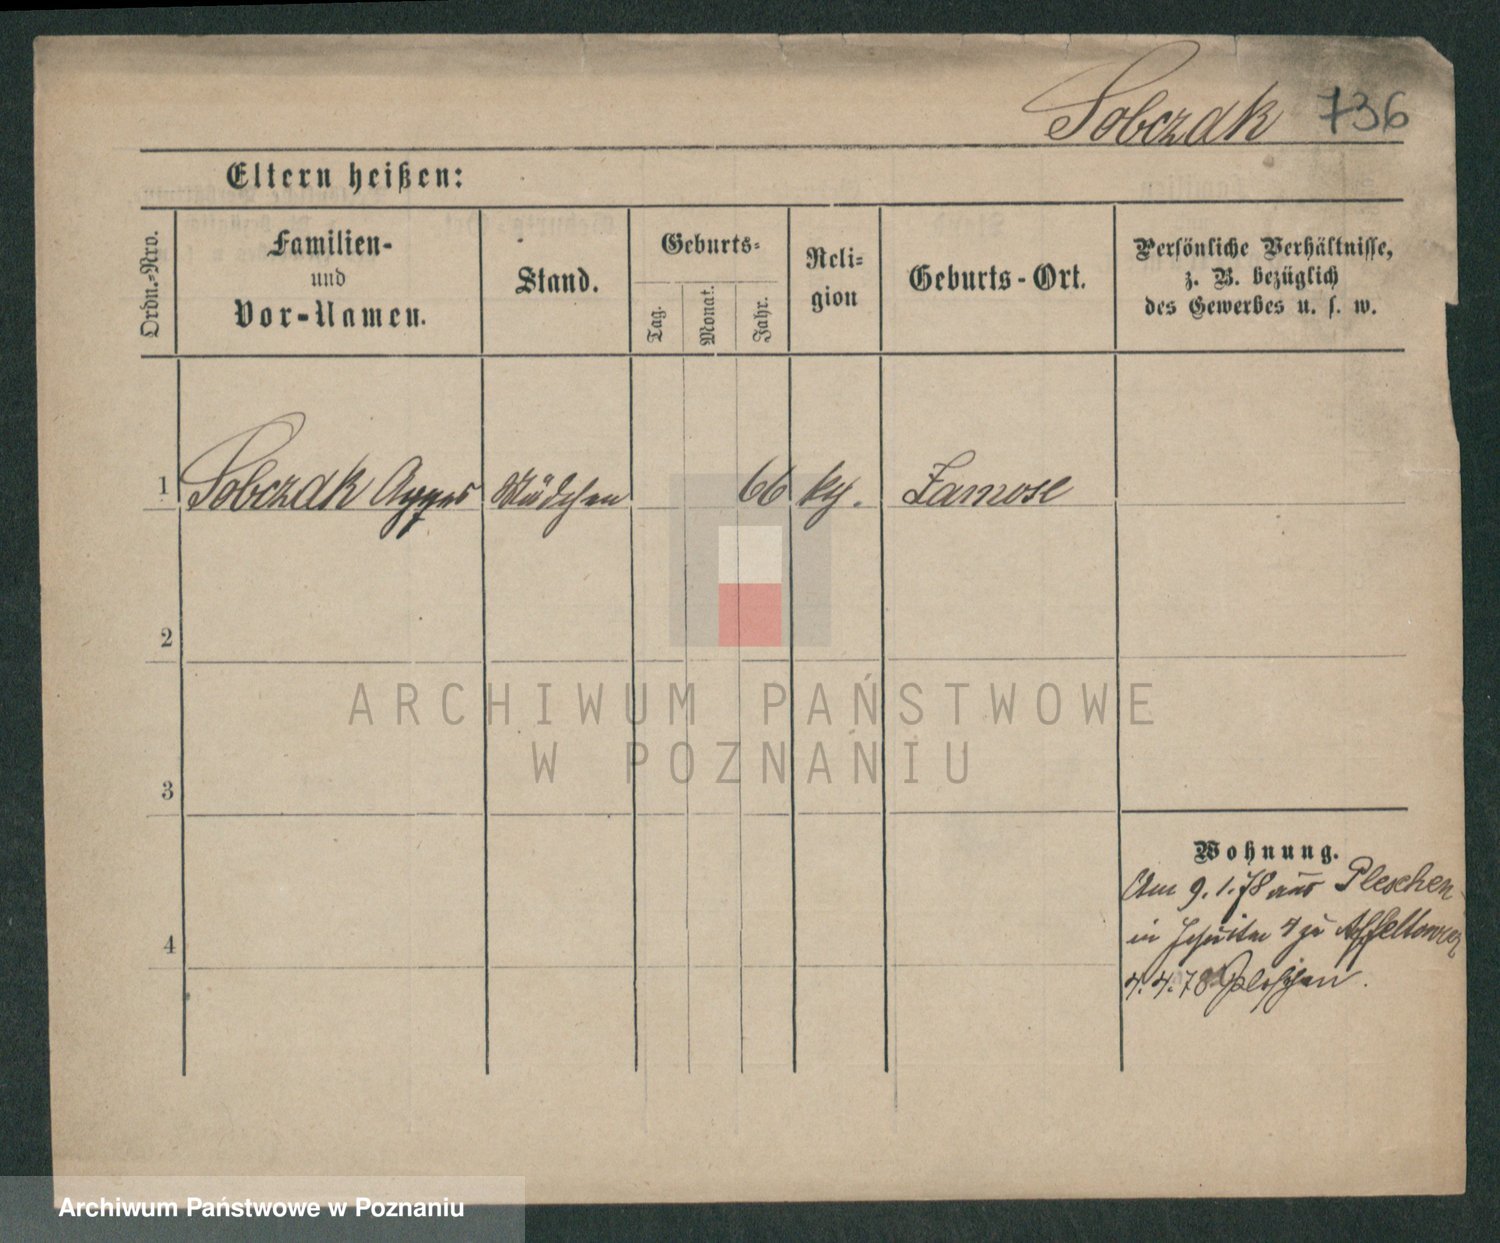 Sobczak 736
Eltern heißen:
Ordn.-Nro.
Familien-
und
Vor-Namen.
Stand.
Geburts-
Tag.
Monat.
Jahr.
Reli-
gion
Geburts-Ort.
Persönliche Verhältnisse,
z. B. bezüglich
des Gewerbes u. s. w.
1 Sobczak Agnes Mädchen 66 kth. Zamose
2
3
4
Wohnung.
Am 9. 1. 78 aus Pleschen
in Jesuiten 4 zu
4. 4. 78 Pleschen.
ARCHIWUM PAŃSTWOWE
W POZNANIU
Archiwum Państwowe w Poznaniu